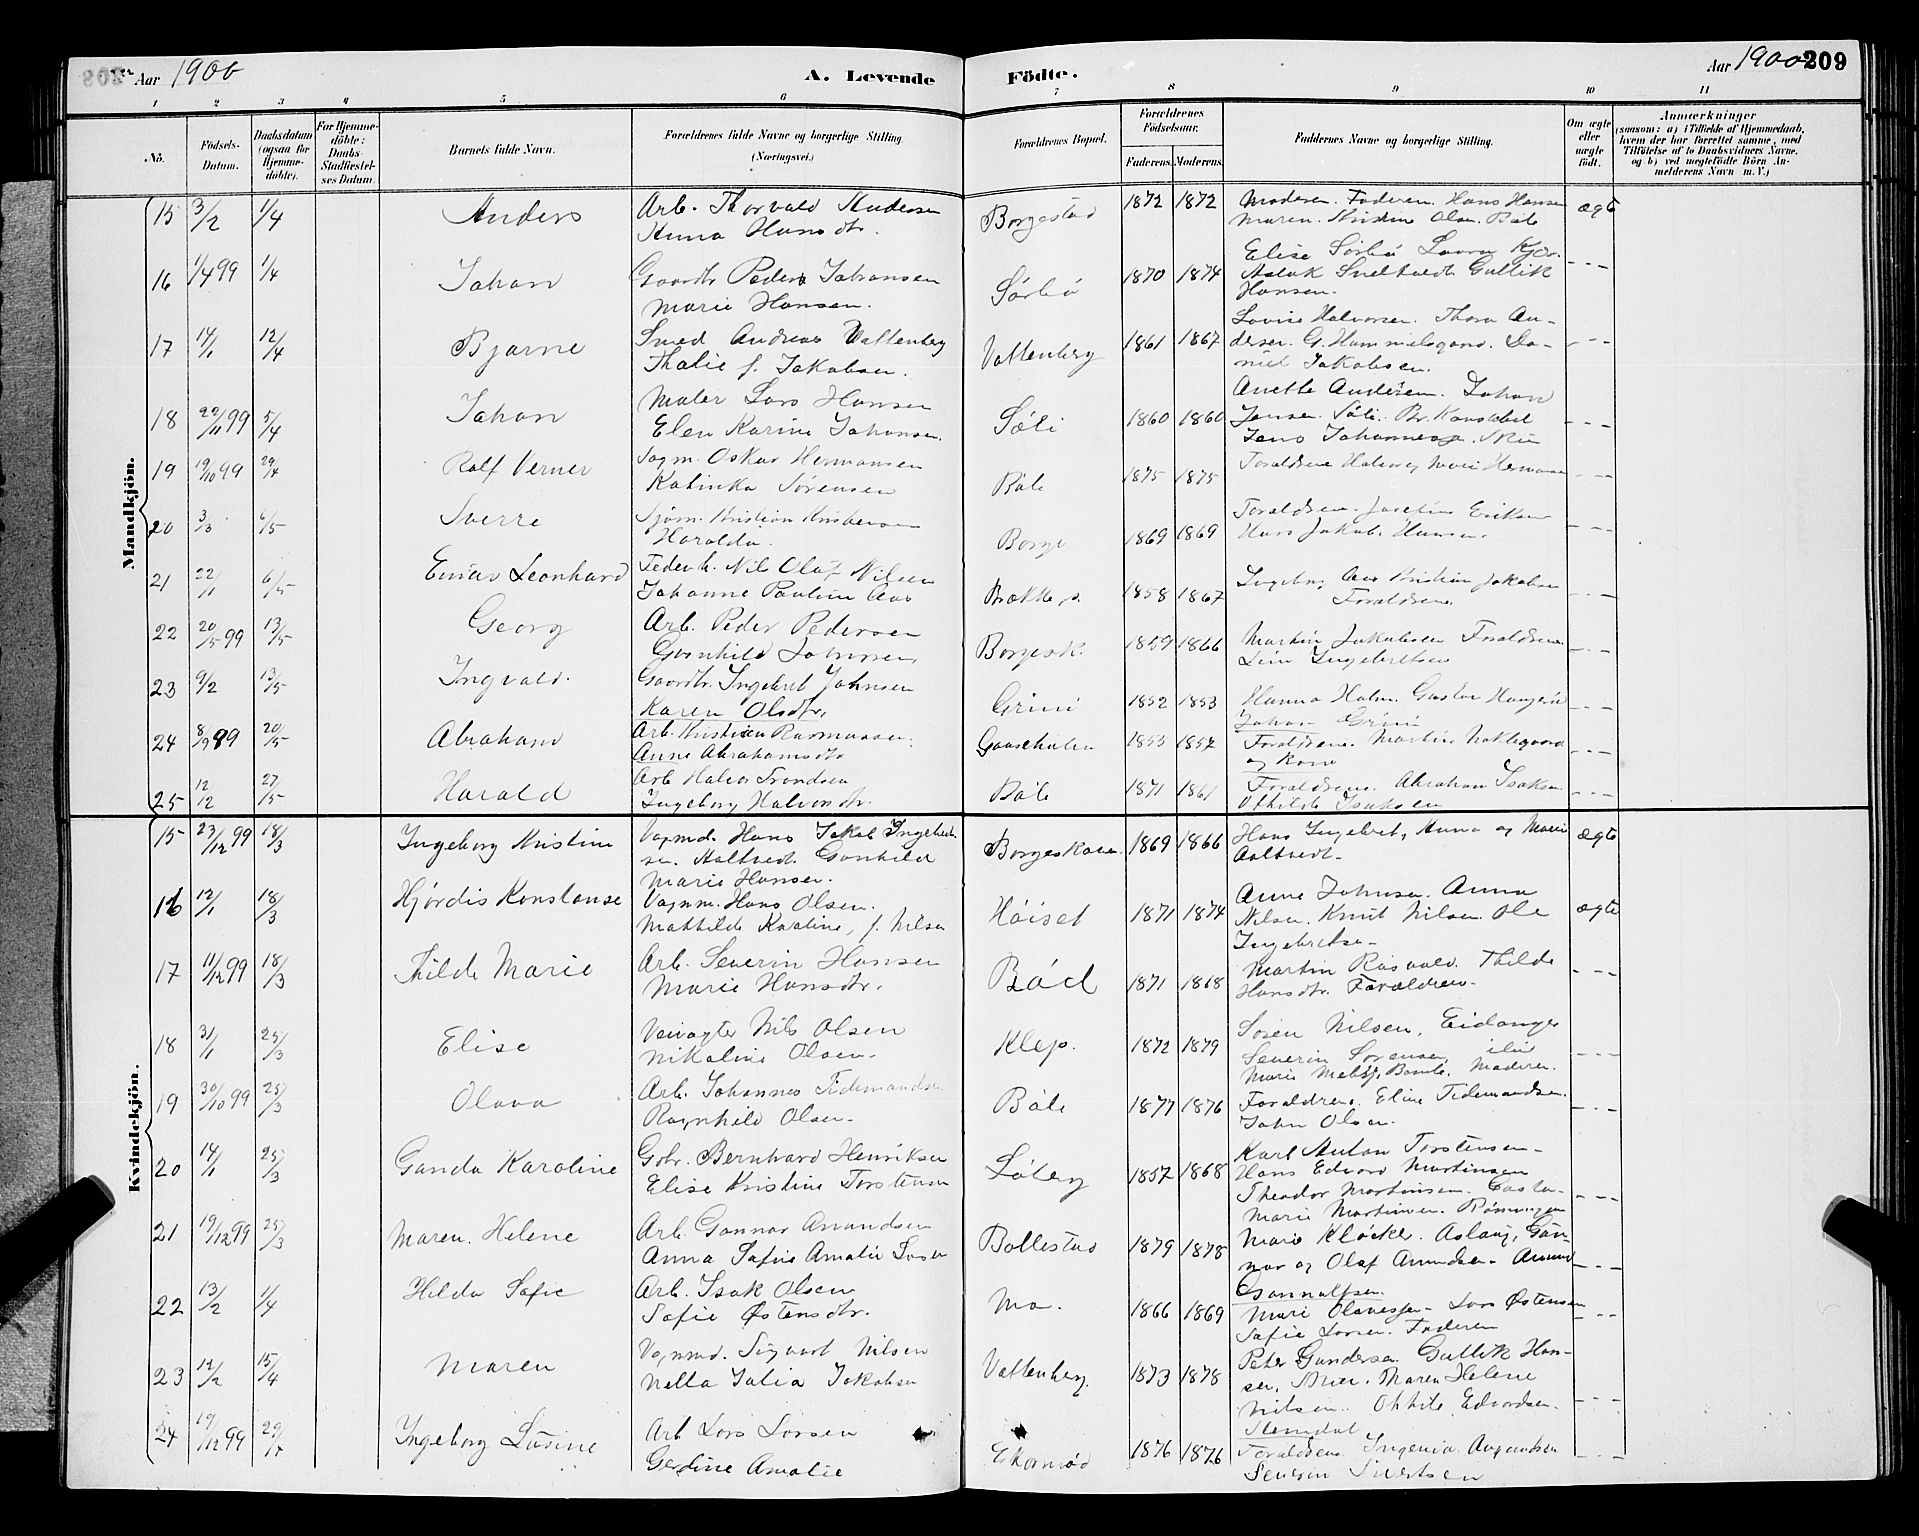 Aar 1900
A. Levende
Födte.
Aar 1900
209
1 2 3 4 5 6 7 8 9 10 11
No.
Födsels-Datum.
Daabsdatum (ogsaa for Hjemme-döbte).
For Hjemme-döbte: Daabs-Stadfæstel-ses Datum.
Barnets fulde Navn.
Forældrenes fulde Navne og borgerlige Stilling (Næringsvei.)
Forældrenes Bopæl.
Forældrenes Födselsaar.
Faderens. Moderens.
Faddernes Navne og borgerlige Stilling.
Om ægte eller uægte födt.
Anmærkninger
(saasom: a) i Tilfælde af Hjemmedaab, hvem der har forrettet samme, med Tilföielse af to Daabsvidners Navne, og b) ved uægtefödte Börn An-melderens Navn m. V.)
Mandkjön.
15 3/2 1/4 Anders Arb. Thorvald Andersen Borgestad 1872 1872 Moderen. Faderen. Hans Hansen ægte
Anna Hansdtr. Maren Kristine Olsen Bøle
16 1/4 99 1/4 Johan Gaardbr Peder Johansen Sørbø 1870 1874 Elise Sørbø Laura Kjør.
Marie Hansen. Aslak Gullik
Hansen.
17 14/1 12/4 Bjarne Smed Andreas Vattenberg Vattenberg 1861 1867 Lovise Halvorsen. Thora An-
Thalie f. Jakobsen. dersen. G. Hammelsgaard. Da-
niel Jakobsen.
18 22/11 99 5/4 Johan Maler Lars Hansen Søli 1860 1860 Anette Andersen. Johan
Elen Karine Johansen. Jensen. Søli. Konstabel
Jens
19 19/10 99 29/4 Ralf Verner Oskar Hermansen Bøle 1875 1875 Forældrene Halvor og Marie Hermansen
Katinka Sørensen
20 3/3 6/5 Sverre Sjøm. Kristian Borge 1869 1869 Forældrene. Josefine Eriksen
Haralda. Hans Jakob Hansen.
21 22/1 6/5 Einar Leonhard Nils Olaf Nilsen 1858 1867 Ingeborg Aas Kristian Jakobsen
Johanne Pauline Aas Forældrene.
22 20/5 99 13/5 Georg Arb. Peder Pedersen Borgesk. 1859 1866 Martin Jakobsen Forældrene
Gunhild Ingebretsen
23 9/2 13/5 Ingvald. Gaardbr. Ingebret Johnsen Grini 1852 1853 Hanna Holm. Gustav
Karen Olsdtr. Johan Grini
24 8/9 99 20/5 Abraham Arb. Kristian Rasmussen. Gaasehølen 1855 1857 Forældrene. Martin
Anne Abrahamsdtr.
25 12/12 27/5 Harald Arb Halvor Trondsen Bøle 1871 1861 Forældrene. Abraham Isaksen
Ingeborg Halvorsdtr. Othilde Isaksen
Kvindekjön.
15 23/12 99 18/3 Ingeborg Kristine Vognmd. Hans Jakob Ingebret- Borgeskoven 1869 1866 Hans Ingebret, Anna og Marie ægte
sen. Aaltvedt. Gunhild Aaltvedt.
Marie Hansen.
16 12/1 18/3 Hjørdis Konstanse Vognm. Hans Olsen. Høiset 1871 1874 Anne Johnsen. Anna ægte
Mathilde Karoline, f. Nilsen Nilsen. Knut Nilsen. Ole
Ingebretsen
17 11/12 99 18/3 Thilde Marie Arb. Severin Hansen Bød 1871 1868 Martin Thilde
Marie Hansdtr. Hansdtr. Forældrene.
18 31/1 25/3 Elise Veivogter Nils Olsen Klep. 1872 1879 Soren Nilsen, Eidanger
Nikoline Olsen. Severin Sørensen
Marie Bamble. Moderen.
19 30/10 99 25/3 Olava Arb. Johannes Tidemandsen Bøle 1877 1876 Forældrene. Eline Tidemandsen.
Ragnhild Olsen. John Olsen.
20 14/1 25/3 Ganda Karoline Gbr. Bernhard Henriksen Løberg 1857 1868 Karl Anton Torstensen
Elise Kristine Torstensen Hans Edvard Martinsen
Theodor Martinsen.
Marie Martinsen. Rønningen
21 19/12 99 25/3 Maren Helene Arb. Gunnar Amundsen Bollestad 1879 1878 Marie Kløcker. Aslaug, Gun-
Anna Sofie Amalie nar og Olaf Amundsen. Amund
Gunnulfsen.
22 13/2 1/4 Hilda Sofie Arb. Isak Olsen Mo. 1866 1869 Mari Olavesen. Lars Østensen
Sofie Østensdtr. Sofie Larsen. Faderen
23 12/2 15/4 Maren Vognmd. Sigvart Nilsen Vattenberg. 1873 1878 Peter Gundersen. Gullik Han-
Nella Julia Jakobsen sen, Maren Helene
Nilsen. Edvardsen.
Stemdal
24 19/12 99 Ingeborg Lusine Arb Lars Larsen Ekornrød 1876 1876 Forældrene Ingeria. Augundsen
Gerdine Amalie Severin Sivertsen